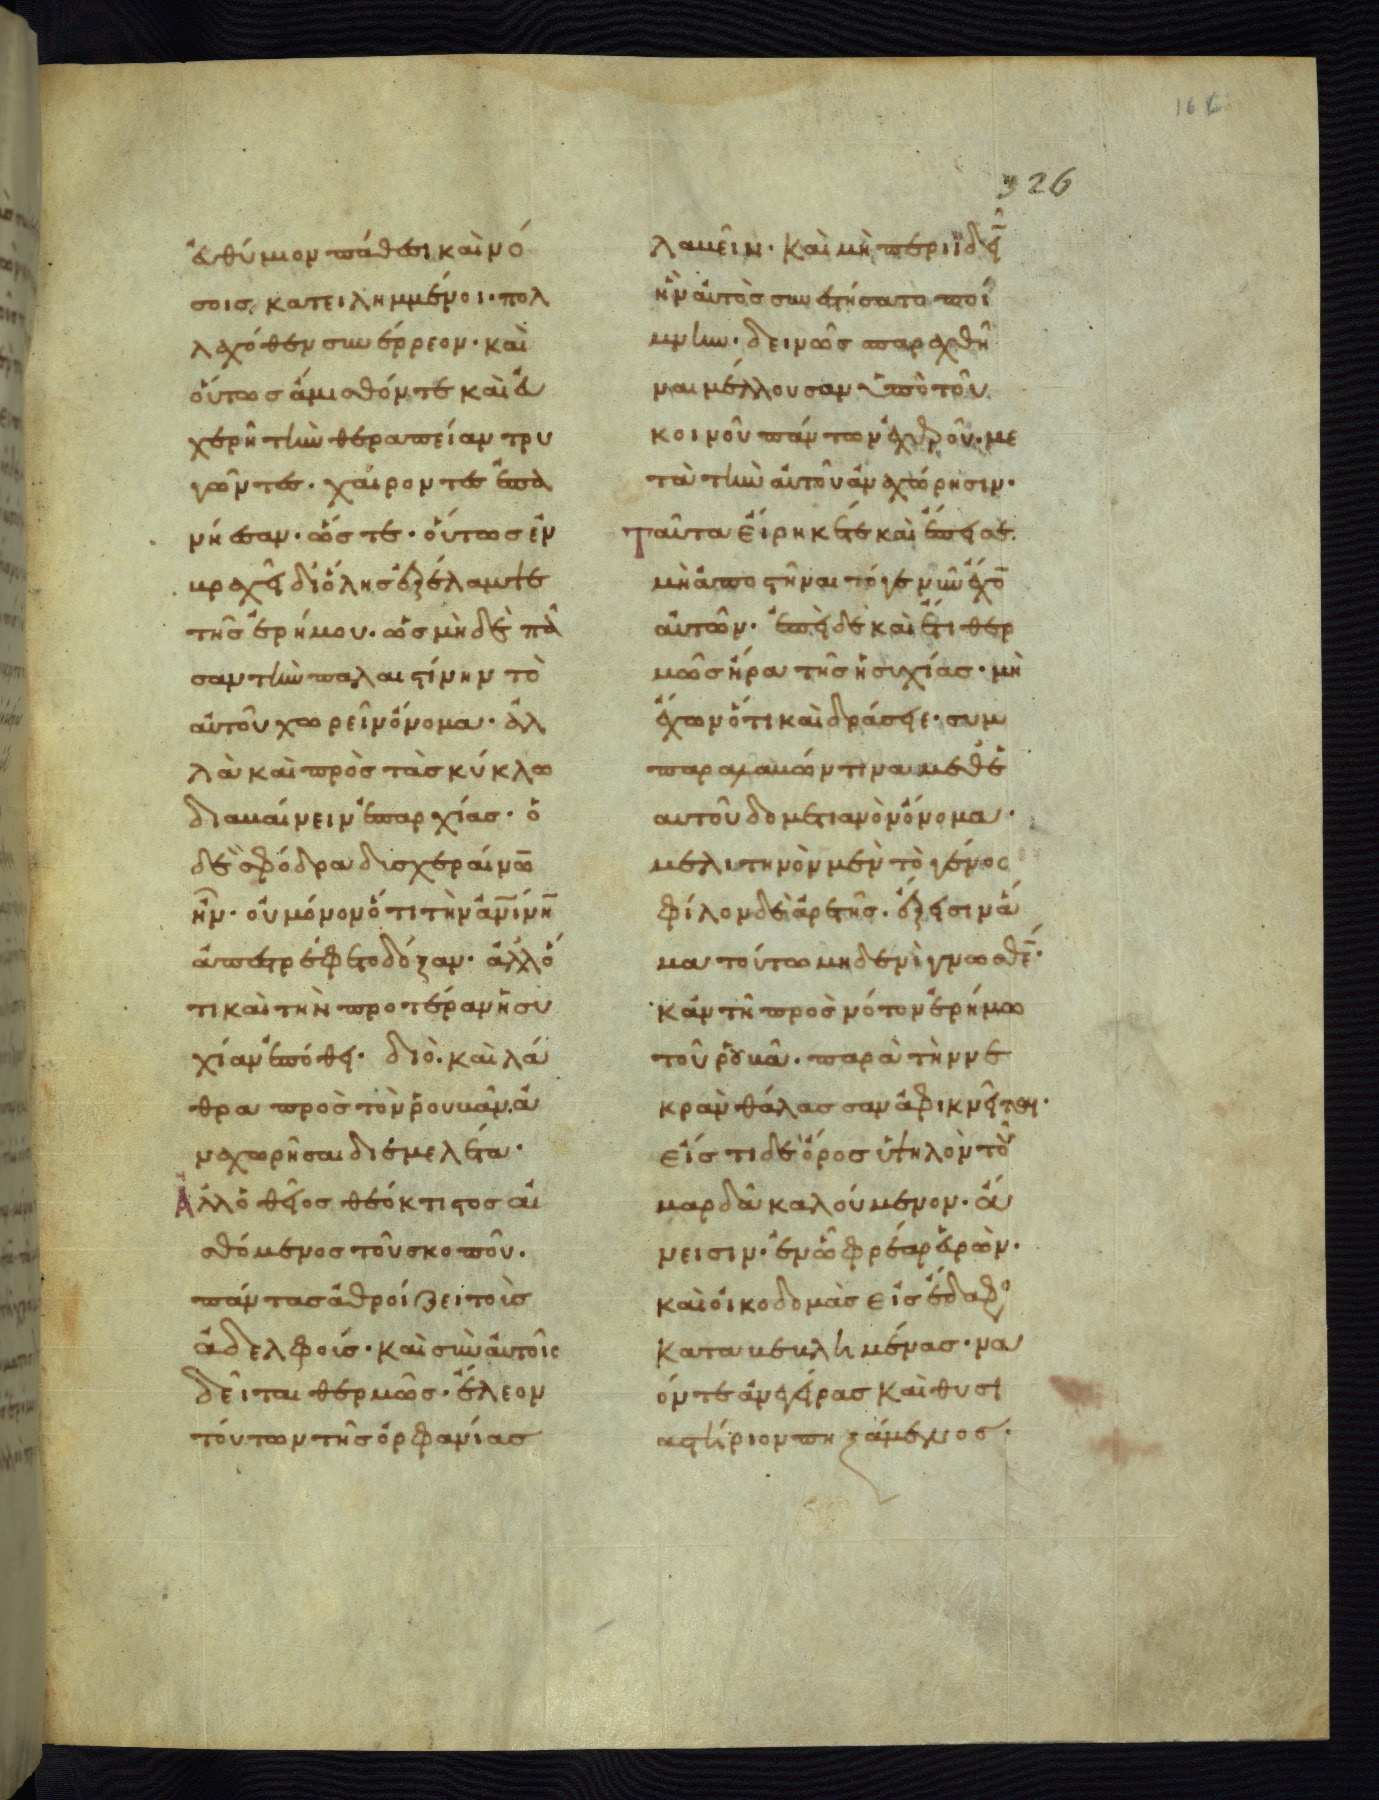 16
326
ἐυθύμιον πάθεσι καὶ νό
σοις κατειλημμένοι· πολ
λαχόθεν συνέρρεον· καὶ
οὕτως ἄμισθόν τε καὶ ἐυ
χερῆ τὴν θεραπείαν τρυ
γῶντες· χαίροντες ἐπα
νήεσαν· ὥς τε· οὕτως ἐν
βραχεῖ δι' ὅλης ἐξέλαμψε
τῆς ἐρήμου· ὡς μὴ δὲ πᾶ
σαν τὴν παλαιστίνην τὸ
αὐτοῦ χωρεῖν ὄνομα· ἀλ
λὰ καὶ πρὸς τὰς κύκλω
διαβαίνειν ἐπαρχίας· ὁ
δὲ σφόδρα δυσχεραίνων
ἦν· οὐ μόνον ὅτι τὴν ἀνινῆ
ἀπετρέφετο δόξαν· ἀλλ' ὅ
τι καὶ τὴν προτέραν ἡσυ
χίαν ἐπόθει· διὸ καὶ λά
θρα πρὸς τὸν ῥουβᾶν ἀ
ναχωρῆσαι διεμελέτα·
Ἀλλ' ὁ θεῖος θεόκτιστος αἰ
σθόμενος τοῦ σκοποῦ·
πάντας ἀθροίζει τοῖς
ἀδελφοῖς· καὶ σὺν αὐτοῖς
δεῖται θερμῶς· ἔλεον
τούτων τῆς ὀρφανίας
λαβεῖν· καὶ μὴ περιϊδεῖν
ἣν αὐτὸς συνεστήσατο ποί
μνην· δεινῶς ταραχθῆ
ναι μέλλουσαν ὑπὸ τοῦ
κοινοῦ πάντων ἐχθροῦ· με
τὰ τὴν αὐτοῦ ἀναχώρησιν·
Ταῦτα εἴρηκέ τε καὶ ἔπεισε
μὴ ἀποστῆναι τό γε νῦν ἔχον
αὐτῶν· ἐπεὶ δὲ καὶ ἔτι θερ
μῶς ἤρα τῆς ἡσυχίας· μὴ
ἔχων ὅτι καὶ δράσειε· συμ
παραλαβών τινα μεθ' ἑ
αυτοῦ δομετιανὸν ὄνομα·
μελιτηνὸν μὲν τὸ γένος
φίλον δὲ ἀρετῆς· ἔξεισιν ἅ
μα τούτω μηδενὶ γνωσθεὶς·
κἀν τῆ πρὸς νότον ἐρήμω
τοῦ ῥουβᾶ· παρὰ τὴν νε
κρὰν θάλασσαν ἀφικνεῖται·
εἰς τι δὲ ὄρος ὑψηλὸν τὸ
μαρδᾶ καλούμενον· ἄ
νεισιν· ἐν ᾧ φρέαρ εὑρὼν·
καὶ οἰκοδομὰς εἰς ἔδαφος
καταβεβλημένας· να
όν τε ἀνεγείρας καὶ θυσι
αστήριον πηξάμενος·